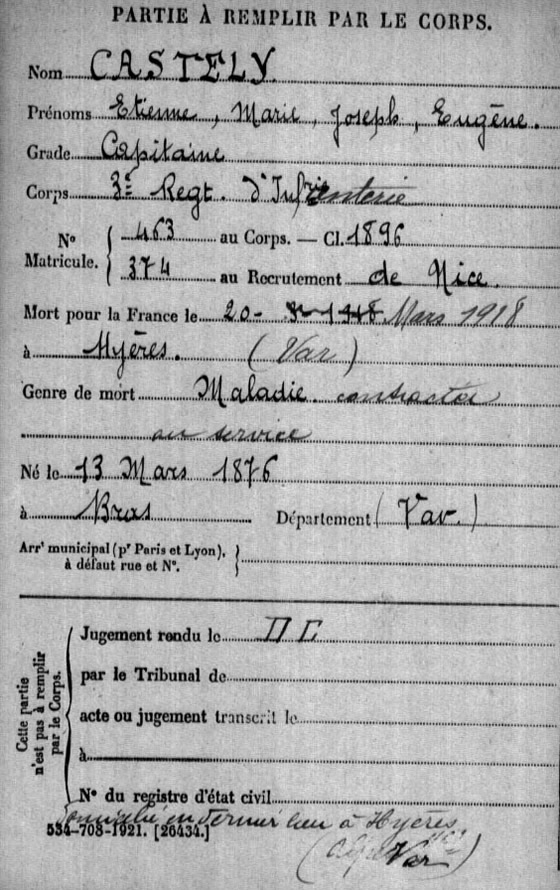 PARTIE À REMPLIR PAR LE CORPS.
Nom CASTELY
Prénoms Etienne, Marie, Joseph, Eugène.
Grade Capitaine
Corps 3e Regt. d'Infanterie
Nº Matricule. { 463 au Corps. — Cl. 1896
374 au Recrutement de Nice.
Mort pour la France le 20- Mars 1918
à Hyères. (Var)
Genre de mort Maladie contractée
au service
Né le 13 Mars 1876
à Bras Département (Var.)
Arrt municipal (pr Paris et Lyon),
à défaut rue et Nº. }
Cette partie
n'est pas à remplir
par le Corps.
Jugement rendu le D C
par le Tribunal de
acte ou jugement transcrit le
à
Nº du registre d'état civil
Domicilié en dernier lieu à Hyères
534-708-1921. [26434.]
(Var)